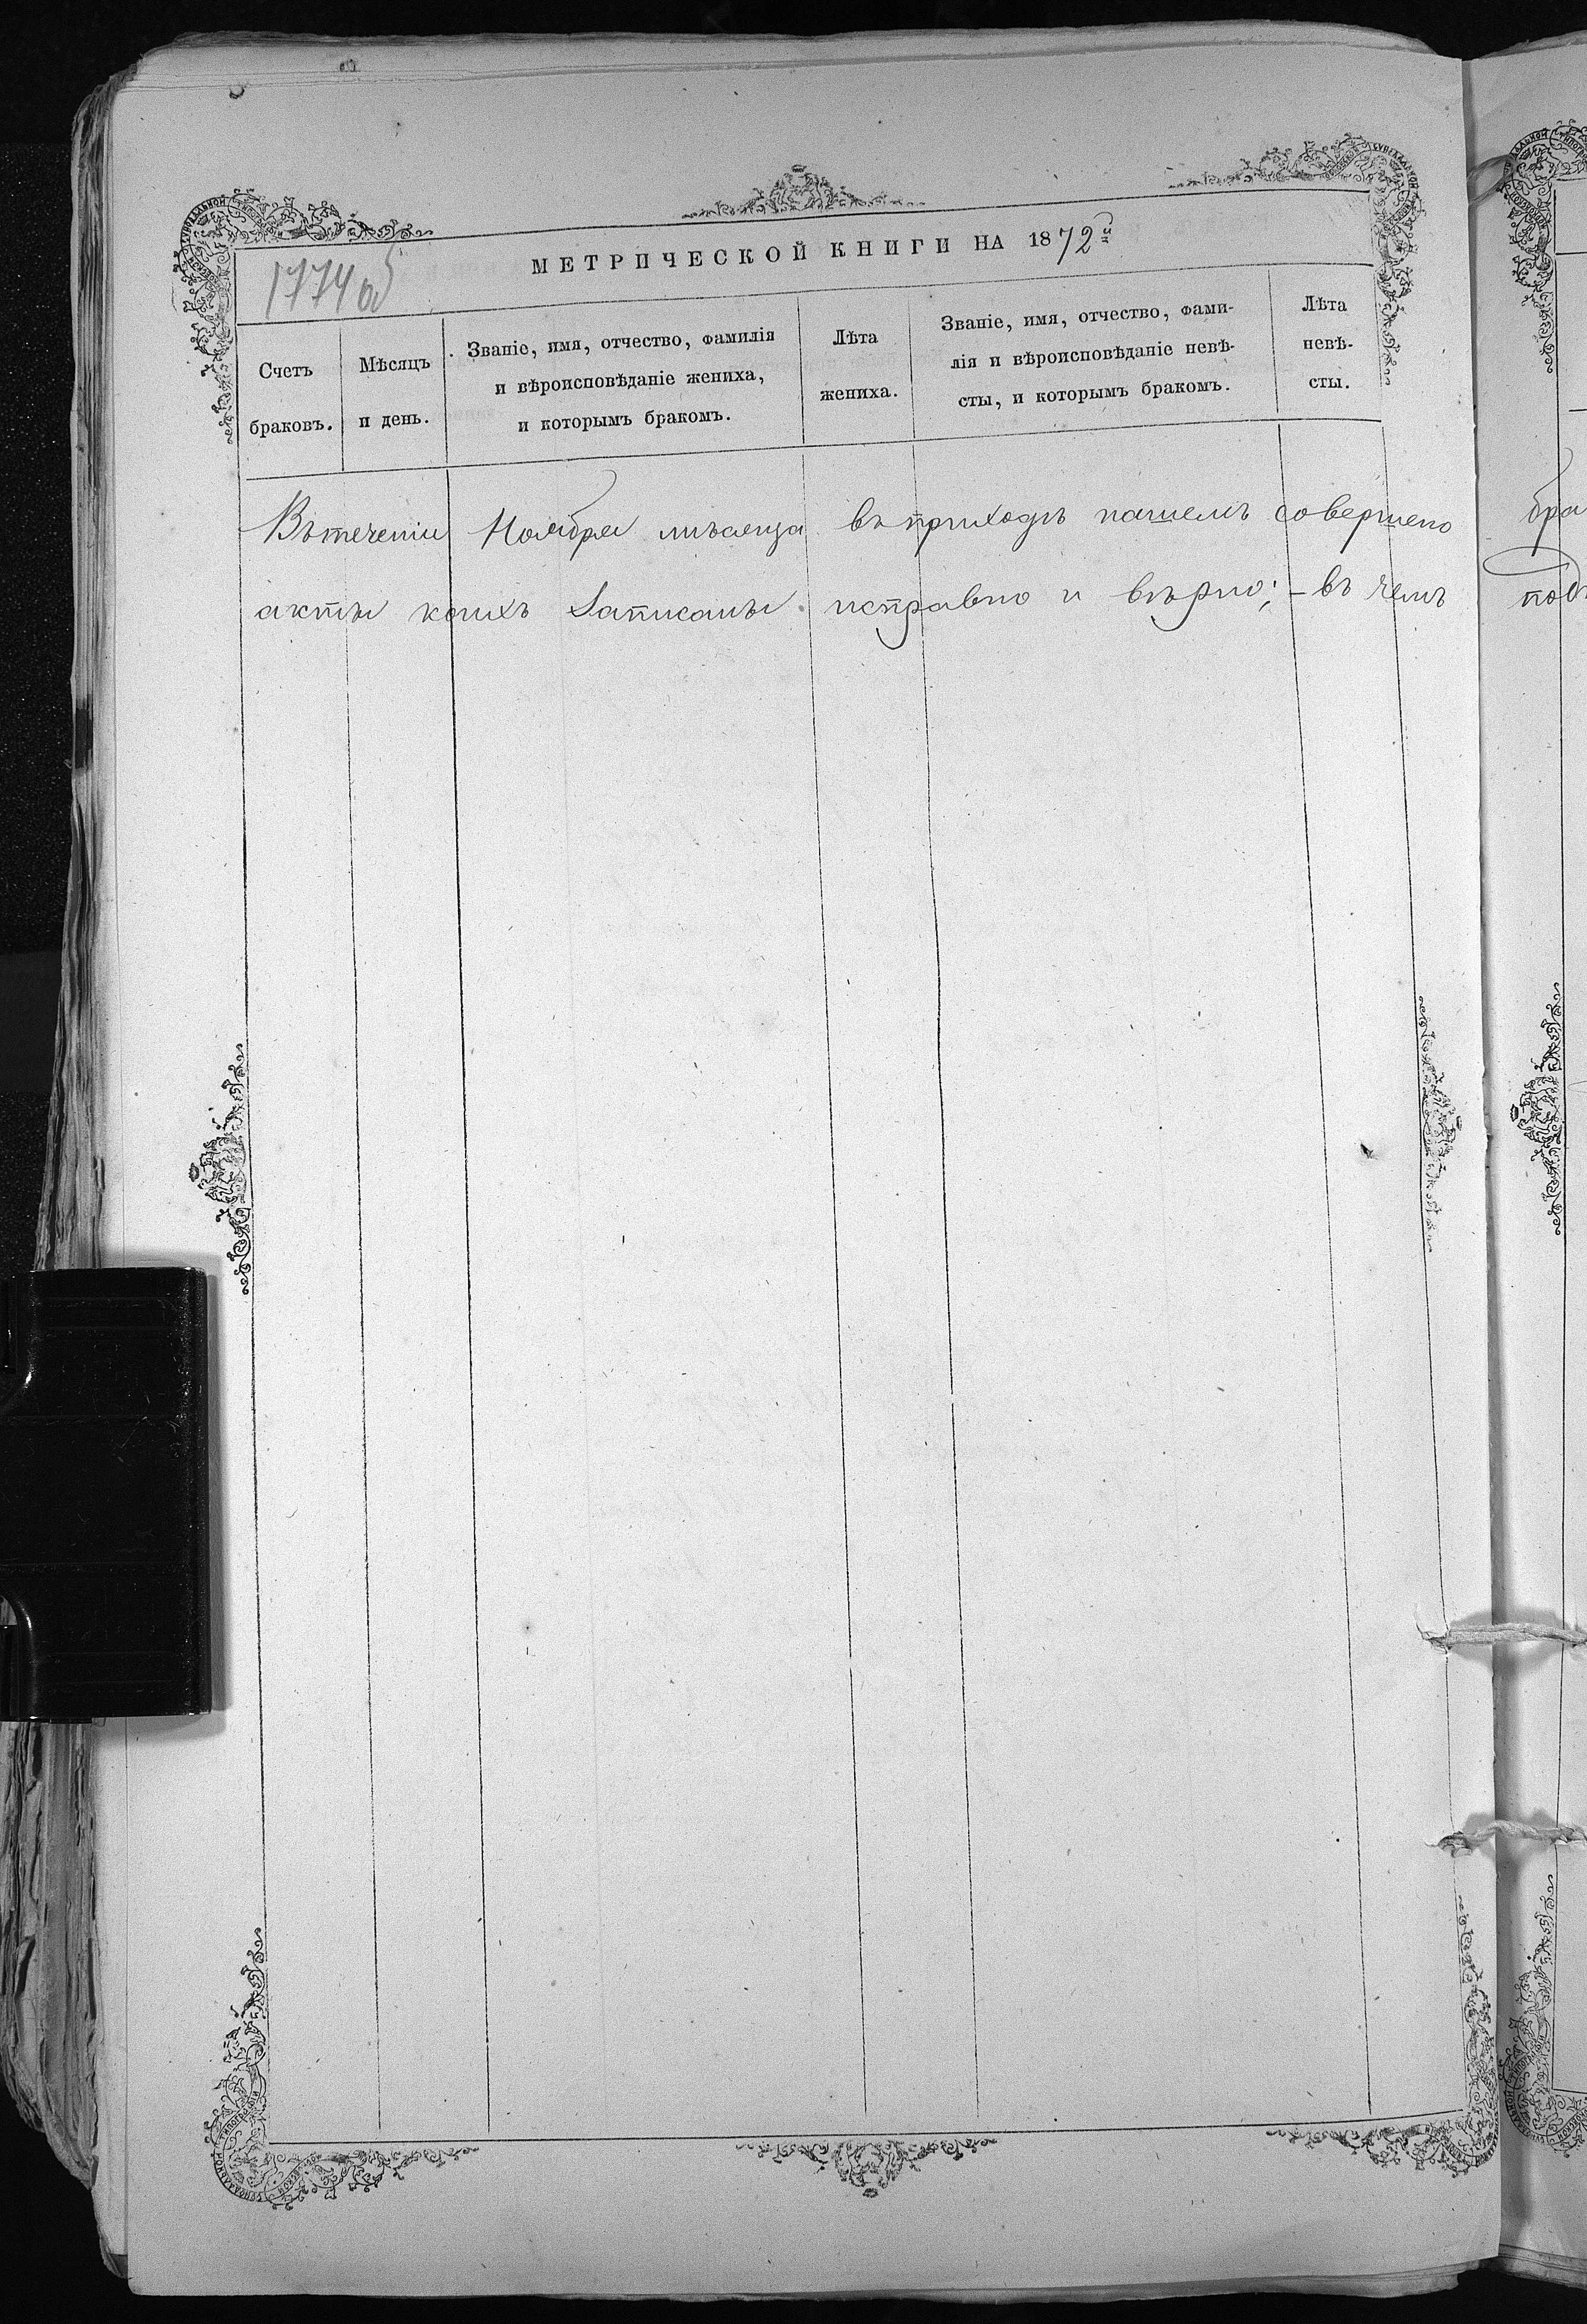 1774 об
МЕТРИЧЕСКОЙ КНИГИ НА 1872й
Счетъ браковъ.
Мѣсяцъ и день.
Званіе, имя, отчество, фамилія
и вѣроисповѣданіе жениха,
и которымъ бракомъ.
Лѣта жениха.
Званіе, имя, отчество, фами-
лія и вѣроисповѣданіе невѣ-
сты, и которымъ бракомъ.
Лѣта
невѣ-
сты.
Въ теченіи Ноября мѣсяца въ приходѣ нашемъ совершено бра
акты коихъ записаны исправно и вѣрно; – въ чемъ под